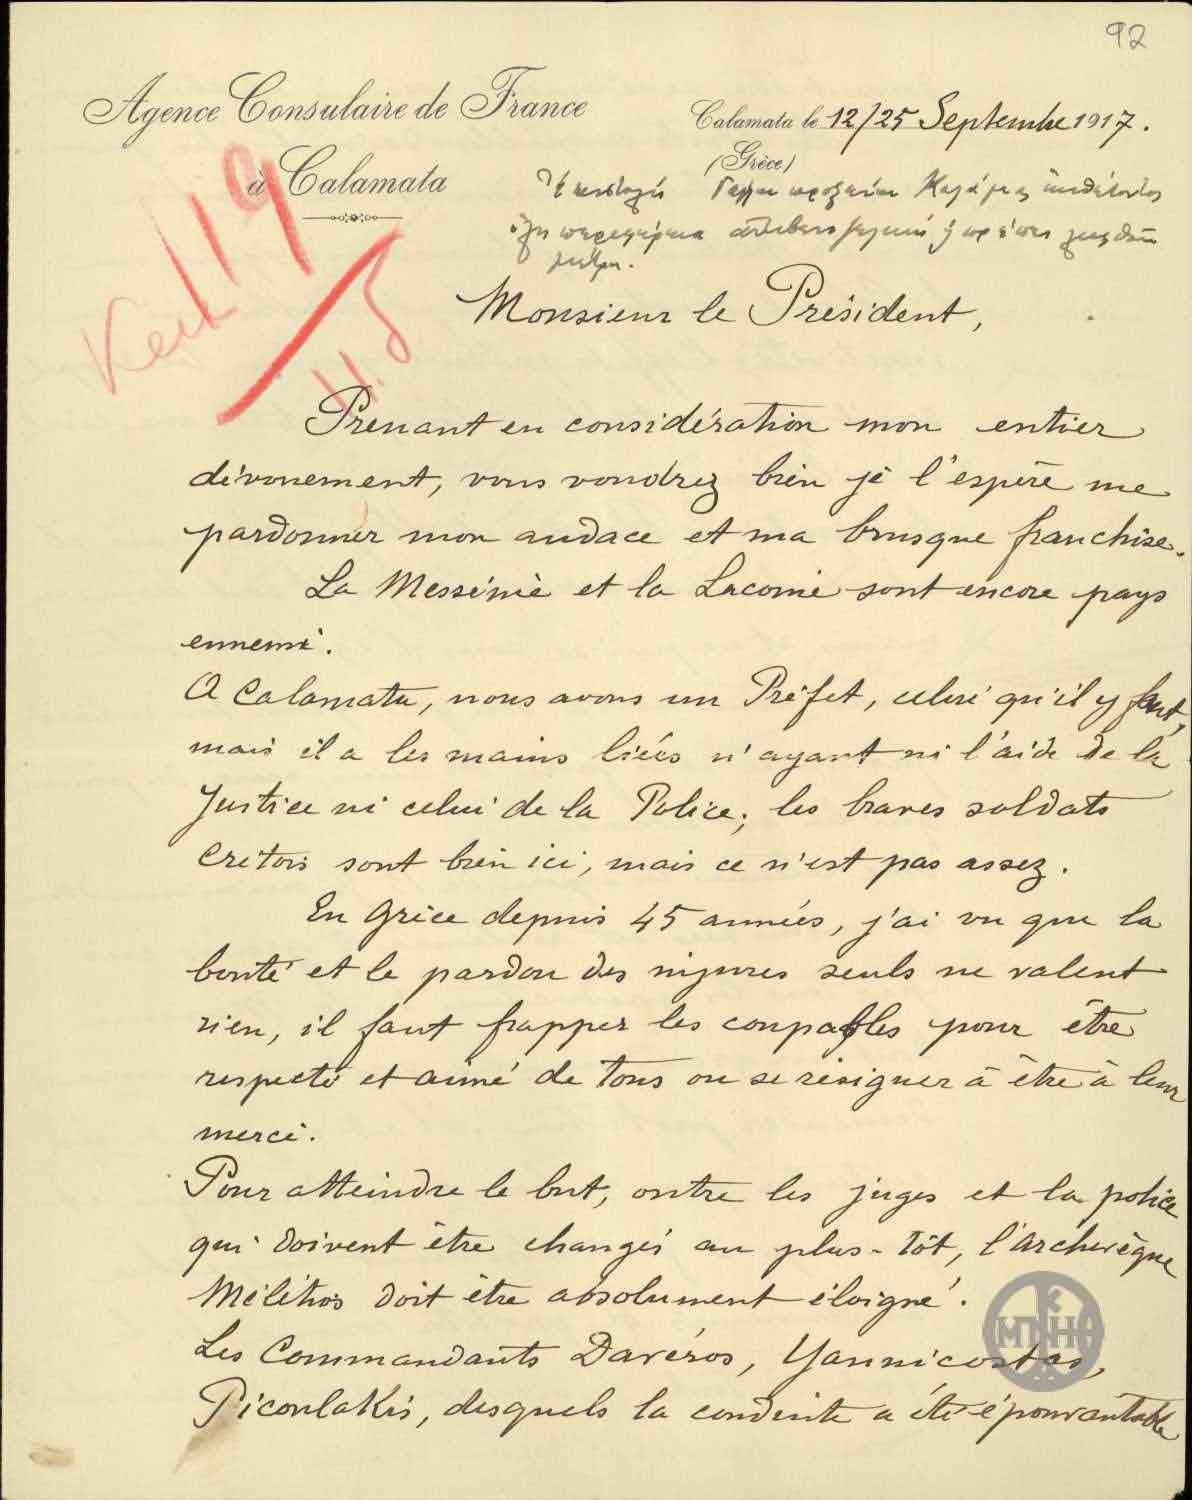 92
Agence Consulaire de France
à Calamata
Calamata le 12/25 Septembre 1917.
(Grèce)
119
Monsieur le Président,
Prenant en considération mon entier
dévouement, vous voudrez bien je l'espère me
pardonner mon audace et ma brusque franchise.
La Messénie et la Laconie sont encore pays
ennemi.
A Calamata, nous avons un Préfet, celui qu'il y faut,
mais il a les mains liées n'ayant ni l'aide de la
Justice ni celui de la Police; les braves soldats
Crétois sont bien ici, mais ce n'est pas assez.
En Grèce depuis 45 années, j'ai vu que la
bonté et le pardon des injures seuls ne valent
rien, il faut frapper les coupables pour être
respecté et aimé de tous ou se résigner à être à leur
merci.
Pour atteindre le but, outre les juges et la police
qui doivent être changés au plus-tôt, l'archevêque
Mélétios doit être absolument éloigné.
Les Commandants Davéros, Yannicostas,
Picoulakis, desquels la conduite a été épouvantable